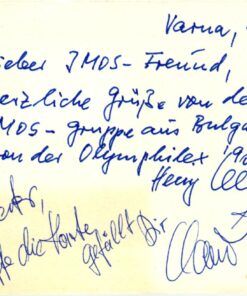 Varna,
ieber IMOS-Freund,
erzliche Grüße von de
MOS-gruppe aus Bulga
on der Olymphilex
Henry
die Karte
gefällt Dir